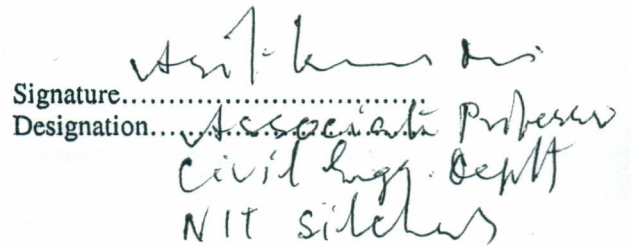 Signature.................................... Asit Kumar Das
Designation.... Associate Professor
Civil Engg. Deptt
NIT Silchar